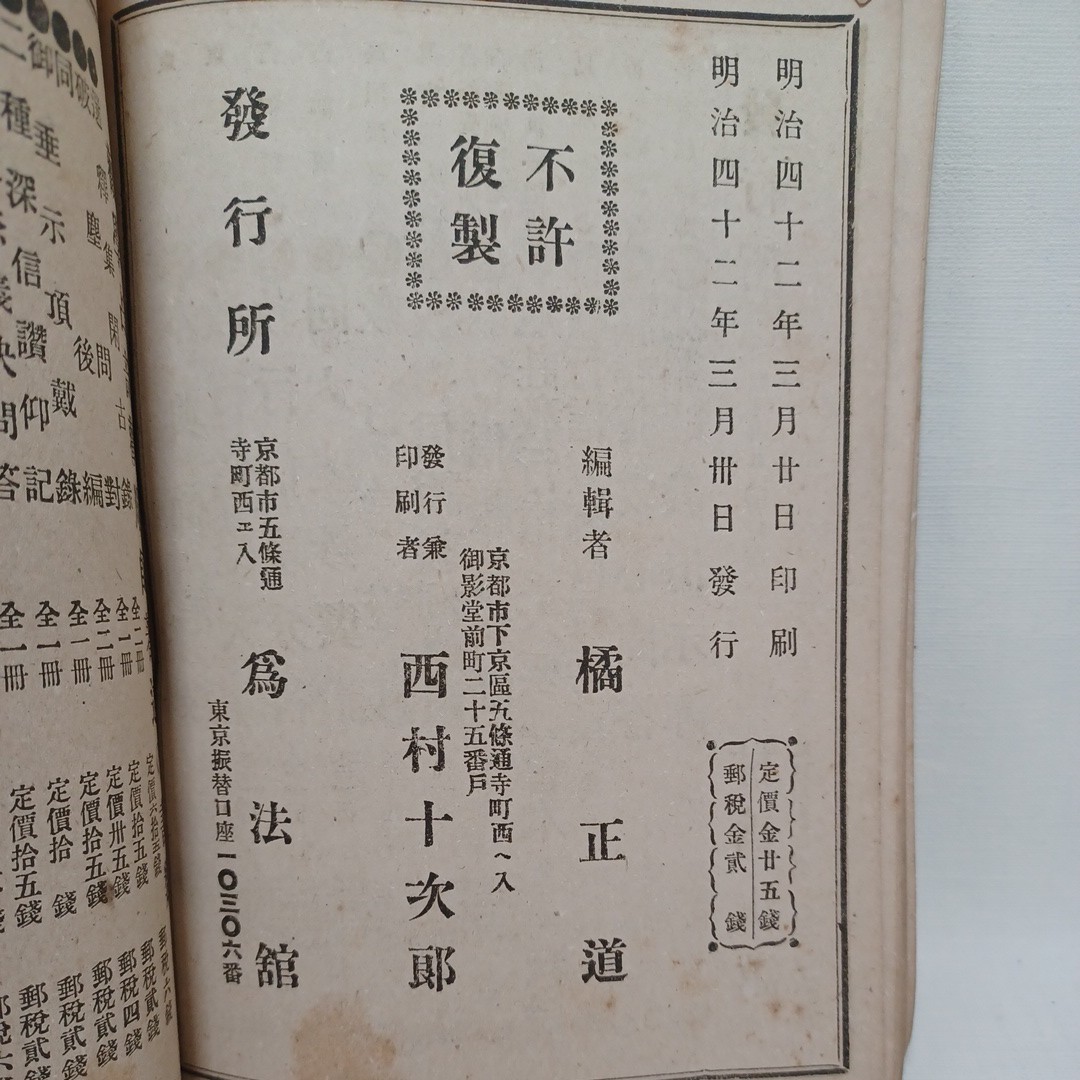 明治四十二年三月廿日印刷
明治四十二年三月卅日發行
定價金廿五錢
郵稅金貳錢
不許
復製
編輯者 橘正道
京都市下京區五條通寺町西へ入
御影堂前町二十五番戶
發行兼
印刷者
西村十次郎
發行所
京都市五條通
寺町西エ入
爲法舘
東京振替口座一〇三〇六番
全二冊
全一冊 定價拾五錢 郵稅貳錢
全二冊 定價卅五錢 郵稅四錢
全一冊 定價拾五錢 郵稅貳錢
頂戴錄 全一冊 定價拾錢 郵稅貳錢
深信讚仰記 全一冊 定價拾五錢 郵稅貳錢